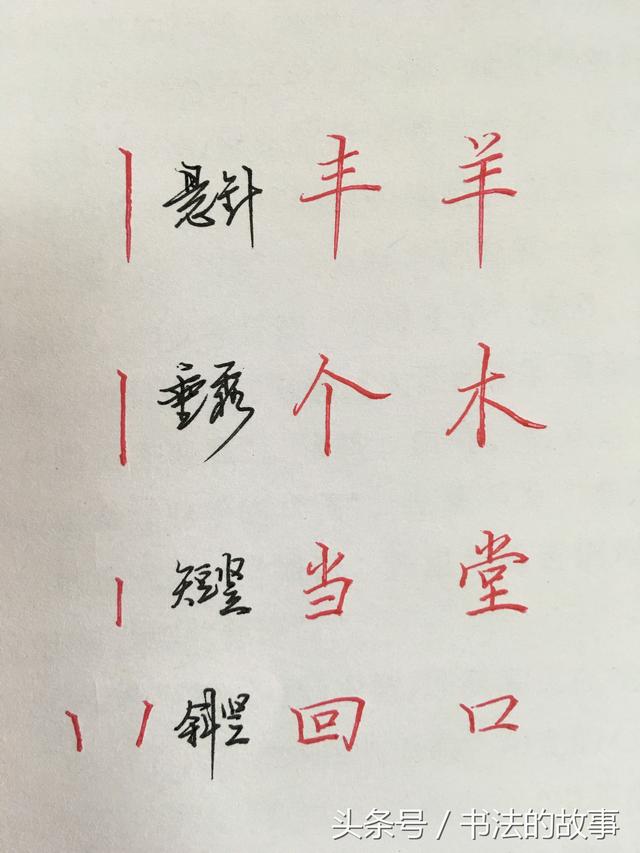 丨 悬针 丰 羊
丨 垂露 个 木
丨 短竖 当 堂
斜竖 回 口
头条号 / 书法的故事